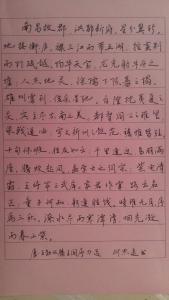 南昌故郡，洪都新府。星分翼轸，
地接衡庐。襟三江而带五湖，控蛮荆
而引瓯越。物华天宝，龙光射牛斗之
墟；人杰地灵，徐孺下陈蕃之榻。
雄州雾列，俊采星驰。台隍枕夷夏之
交，宾主尽东南之美。都督阎公之雅望，
棨戟遥临；宇文新州之懿范，襜帷暂驻。
十旬休假，胜友如云；千里逢迎，高朋满
座。腾蛟起凤，孟学士之词宗；紫电清
霜，王将军之武库。家君作宰，路出名
区；童子何知，躬逢胜饯。时维九月，序
属三秋。潦水尽而寒潭清，烟光凝
而暮山紫。
唐王勃滕王阁序